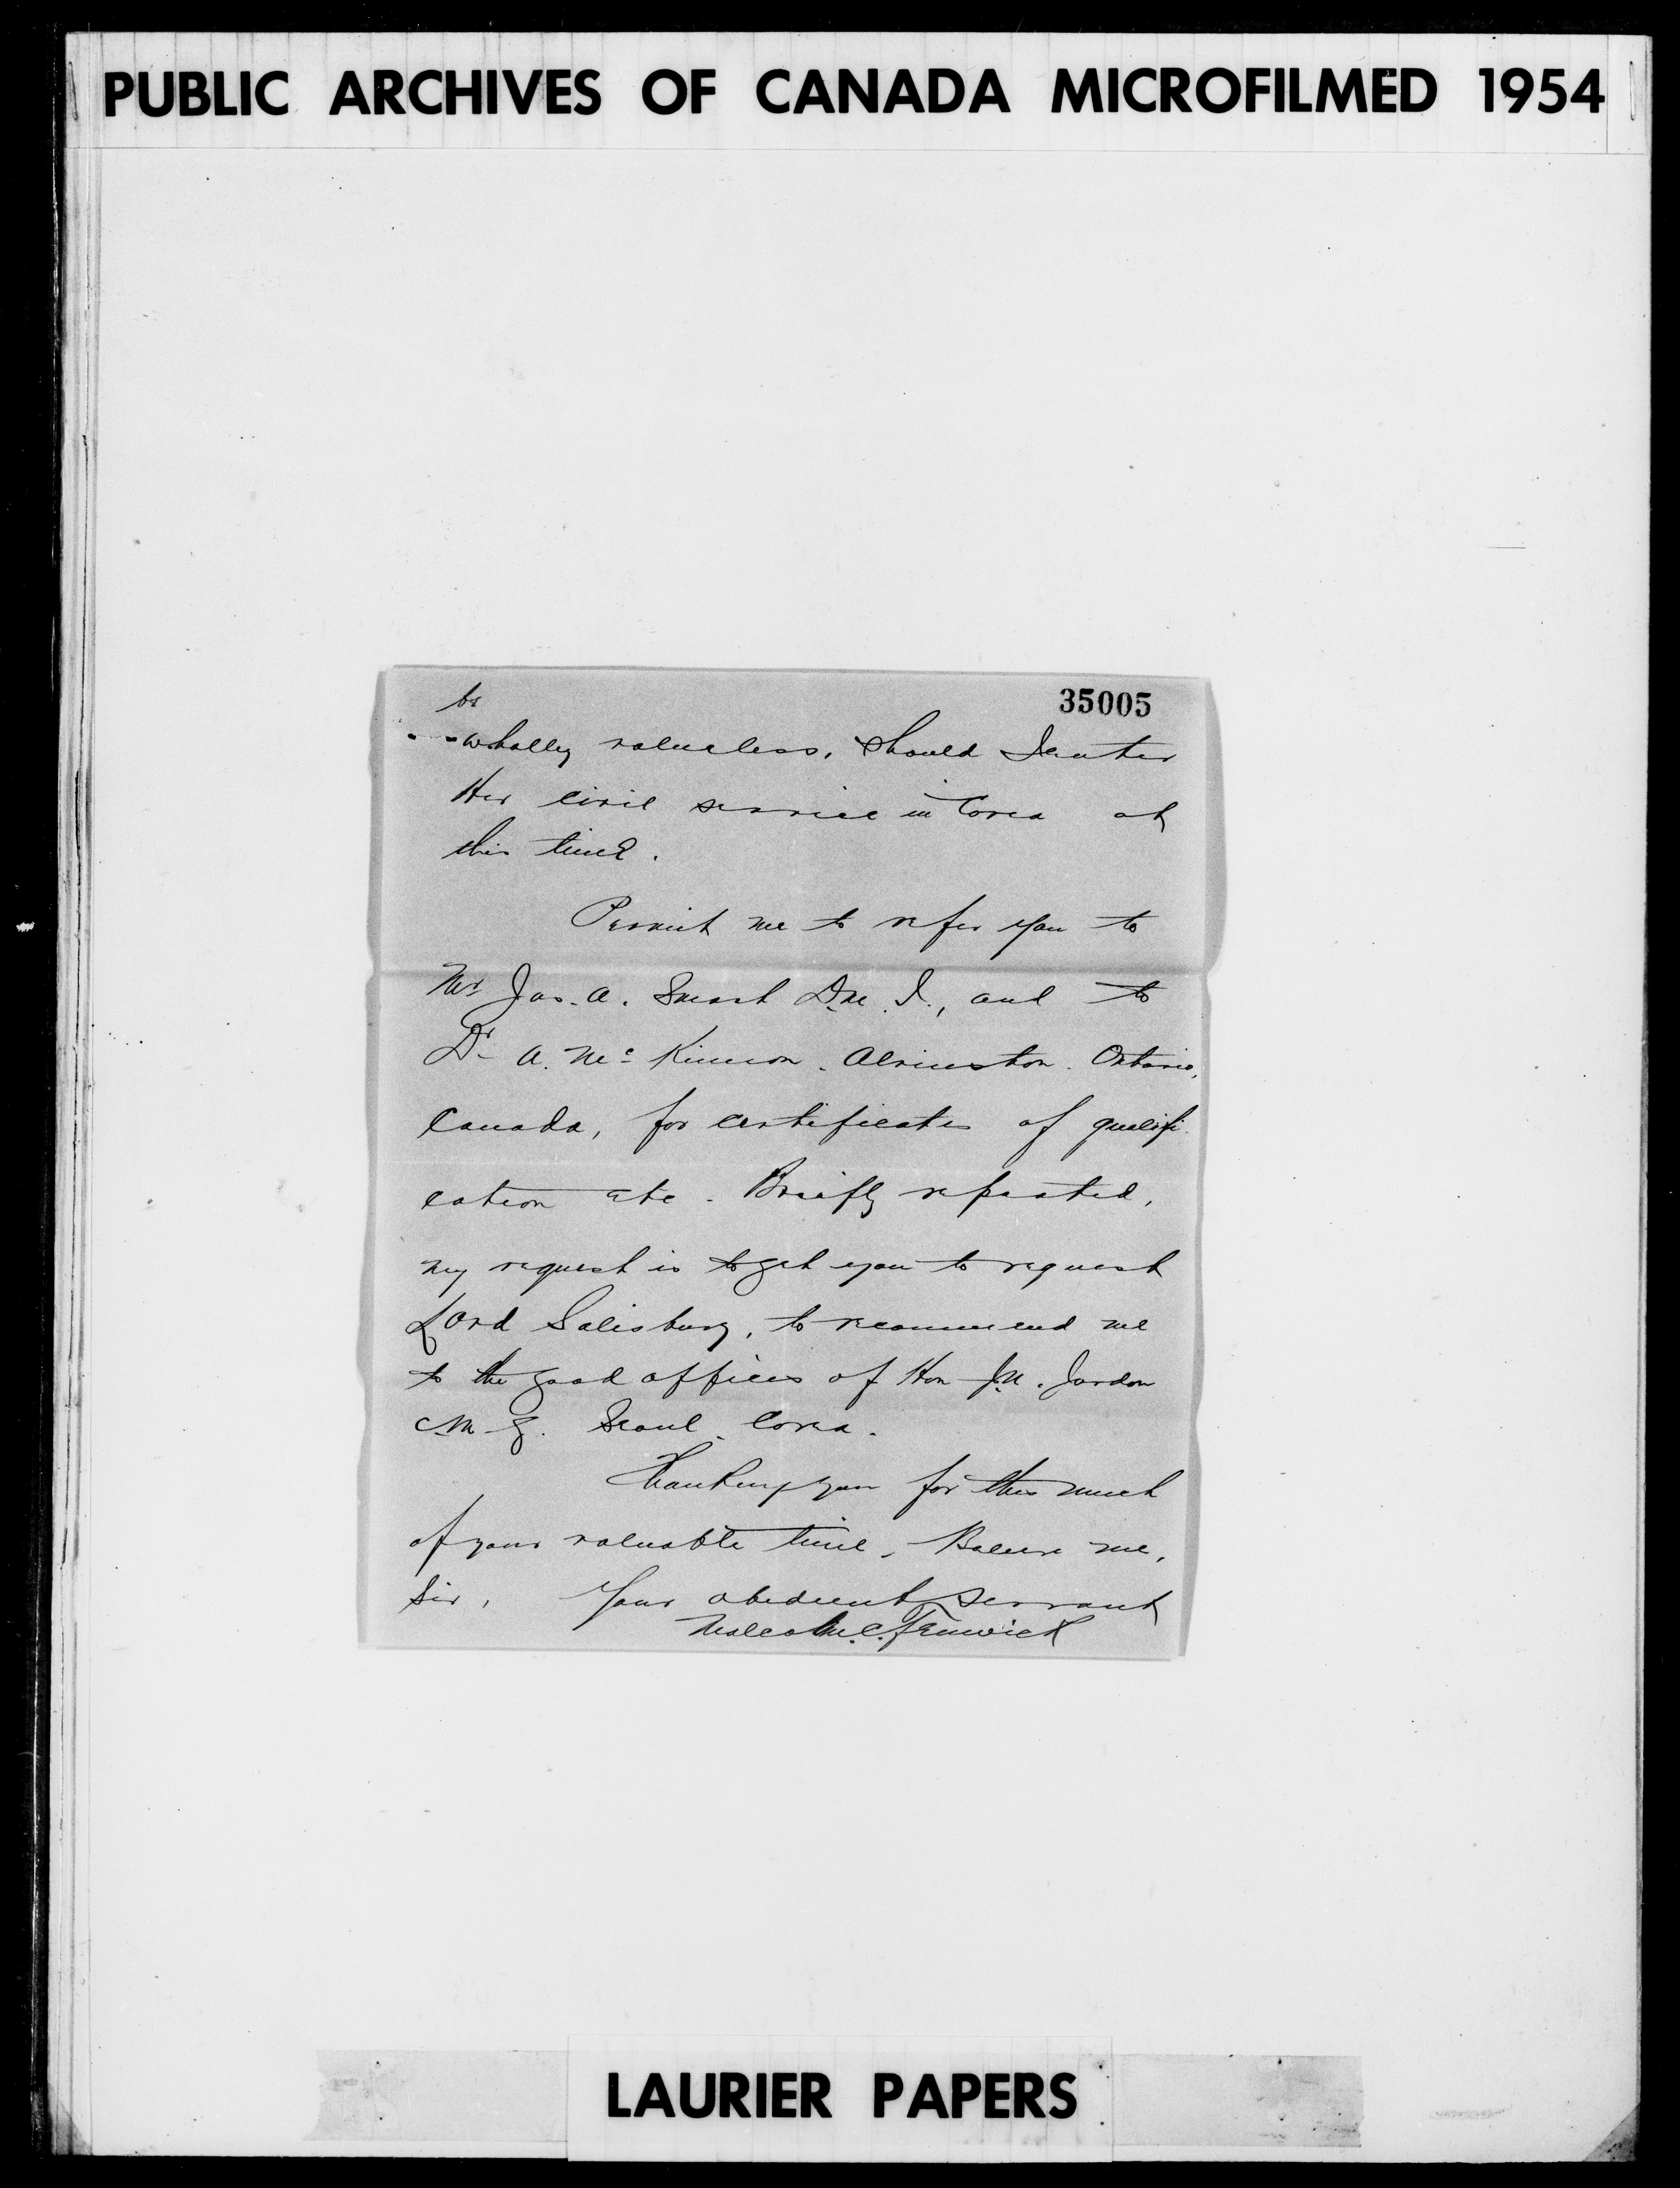 PUBLIC ARCHIVES OF CANADA MICROFILMED 1954
35005
be
wholly valueless, should I enter
Her civil service in Corea at
this time.
Permit me to refer you to
Mr Jas. A. Smart D.M.I., and to
Dr A. Mc Kinnon. Alvinston. Ontario,
Canada, for certificates of qualifi-
cation etc. Briefly repeated,
my request is to get you to request
Lord Salisbury, to recommend me
to the good offices of Hon J.N. Jordon
C.M.G. Seoul. Corea.
Thanking you for this much
of your valuable time, Believe me,
Sir, Your obedient servant
Malcolm C. Fenwick
LAURIER PAPERS